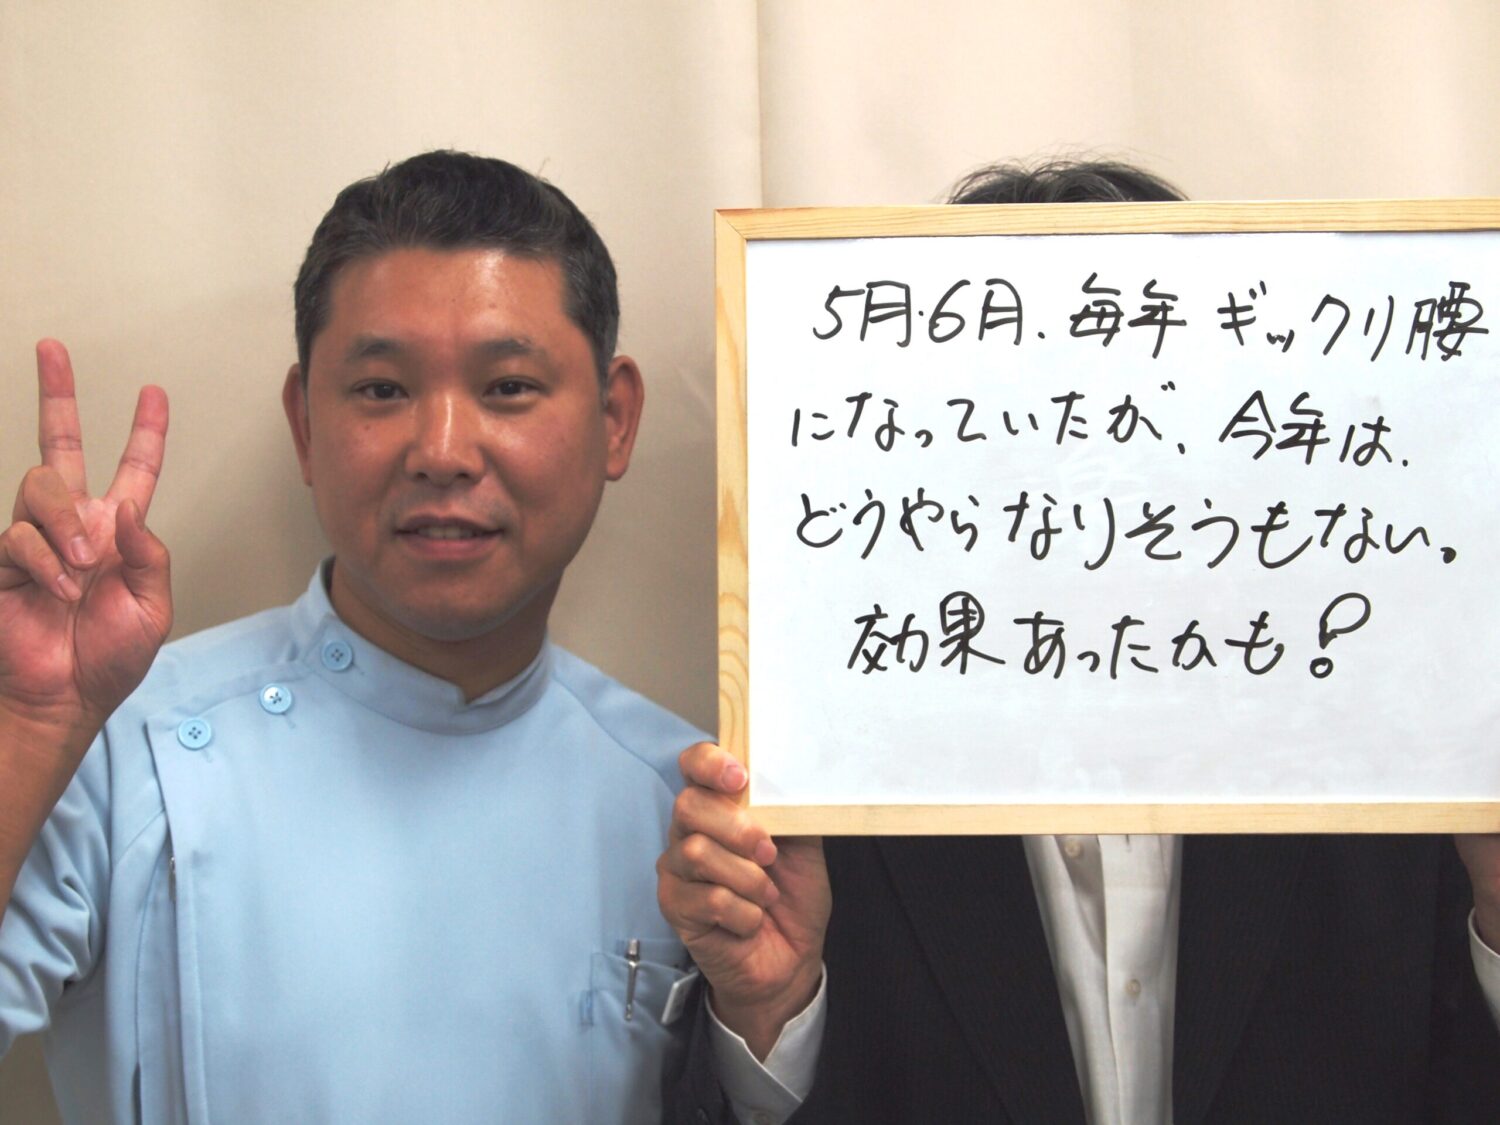 5月・6月、毎年ギックリ腰
になっていたが、今年は、
どうやらなりそうもない。
効果あったかも!?